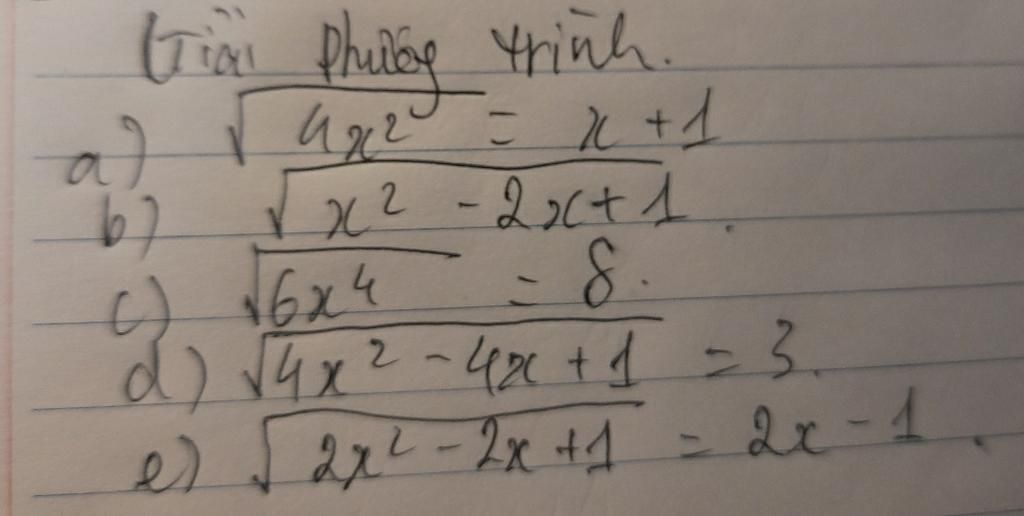 Giải phương trình.
a) √4x² = x + 1
b) √x² - 2x + 1.
c) √6x⁴ = 8.
d) √4x² - 4x + 1 = 3.
e) √2x² - 2x + 1 = 2x - 1.